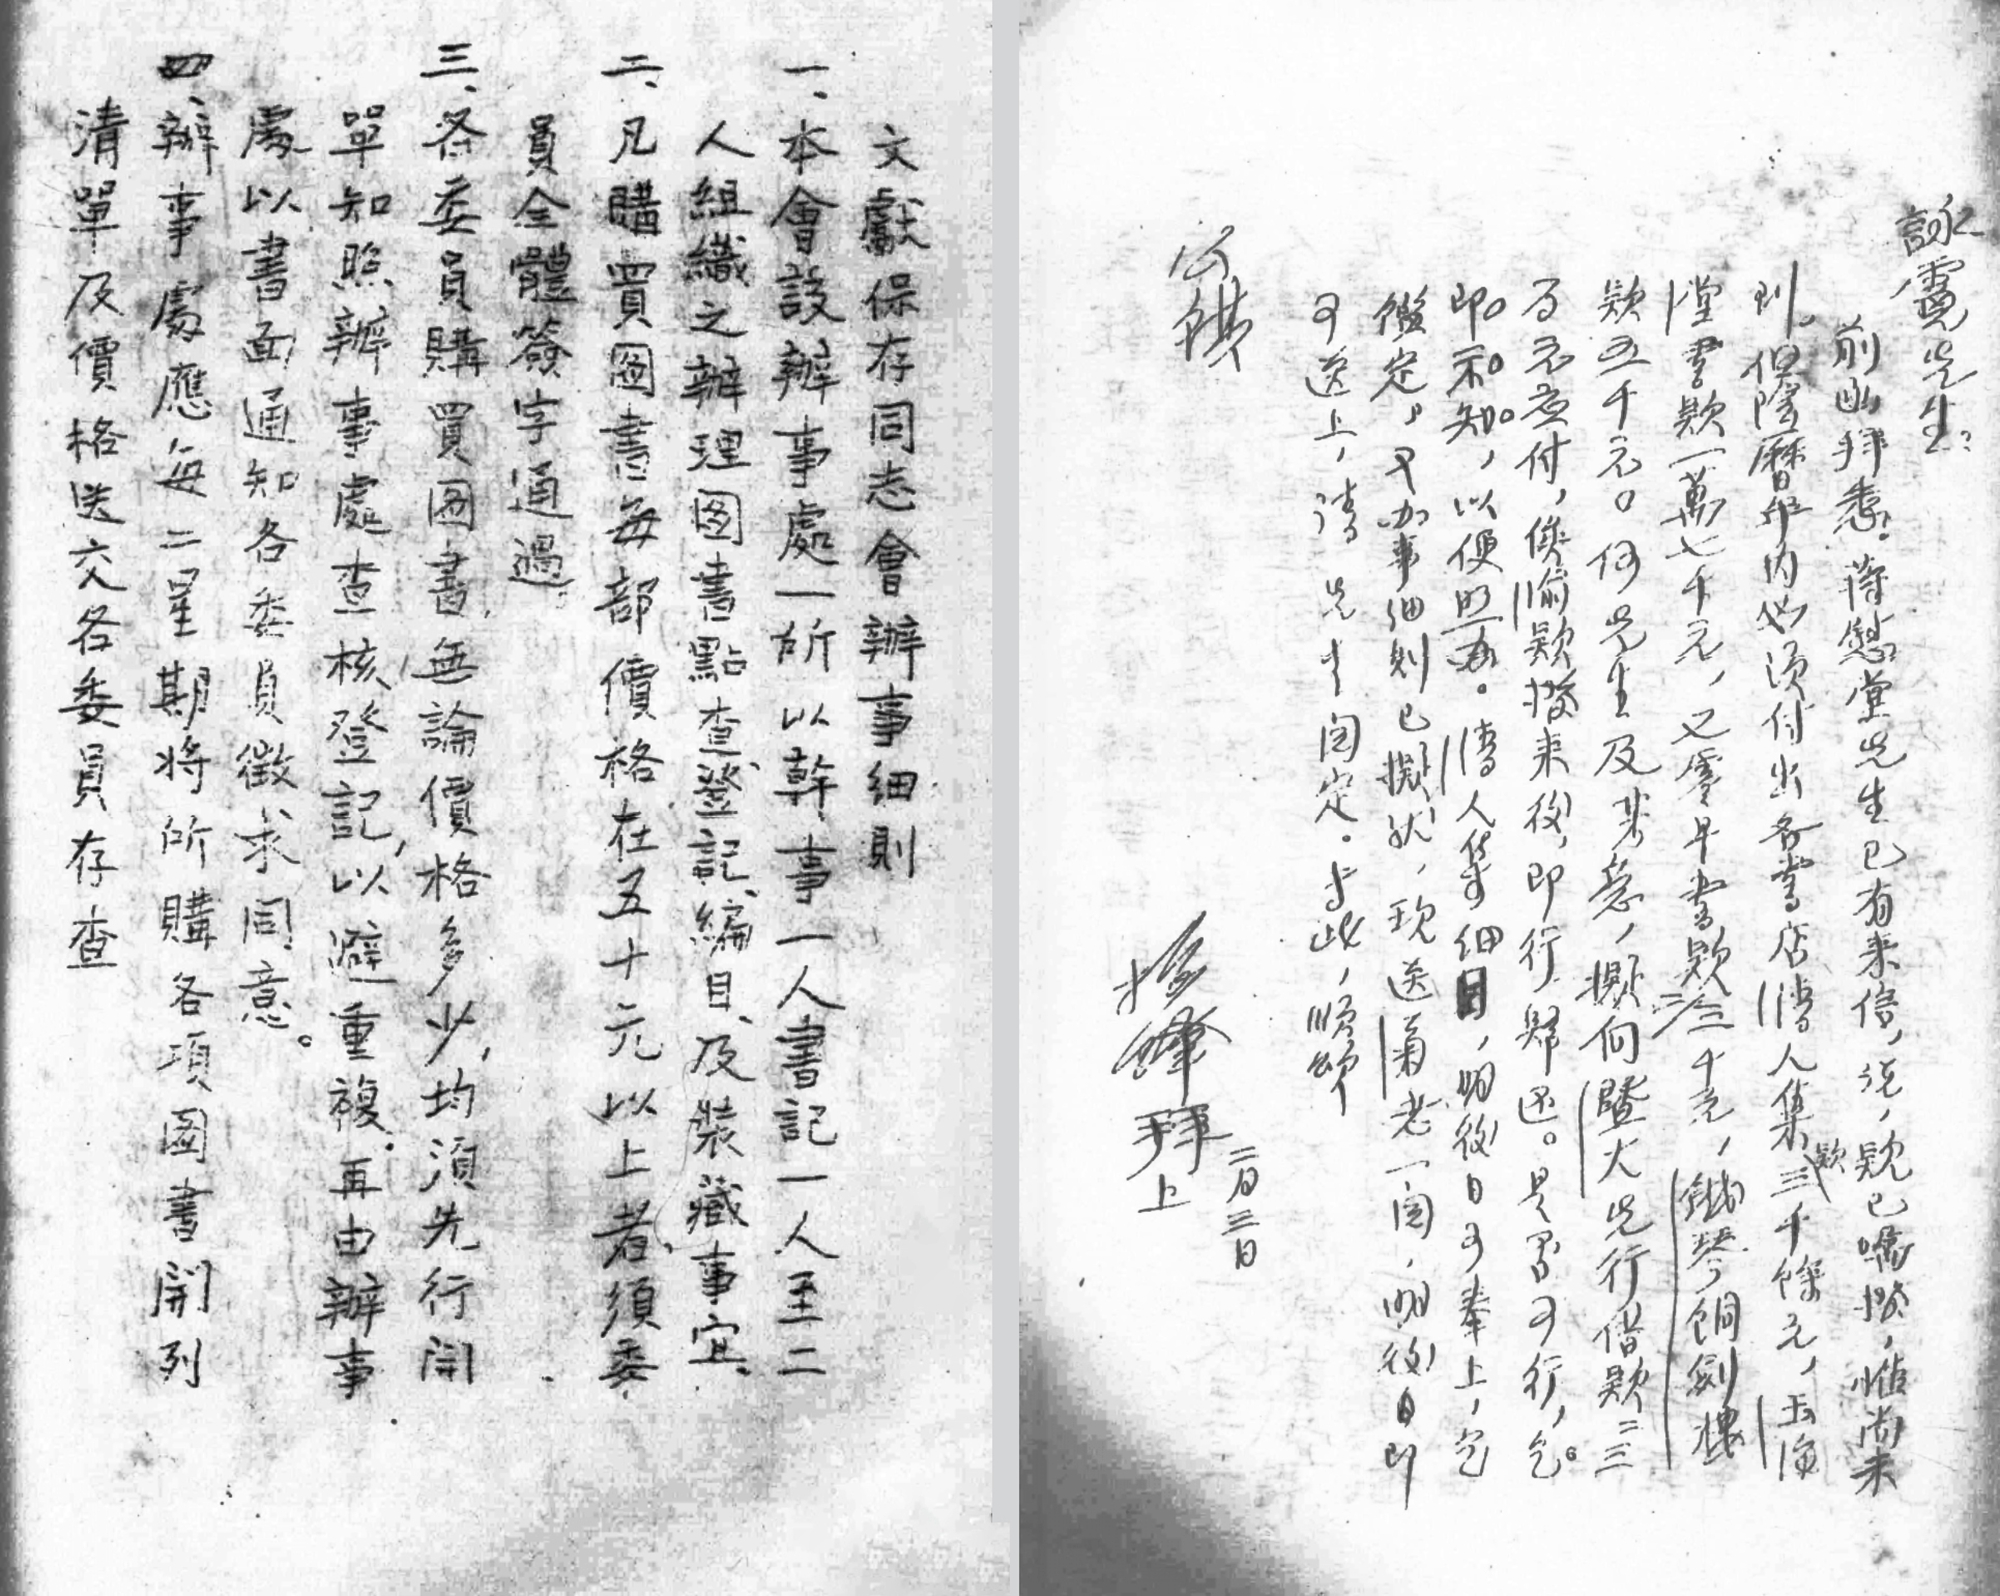 詠霓先生：
前函拜悉。蔣慰堂先生已有来信，说，欵已嘱撥，惟尚未
到。但隂曆年内必须付出各書店，潘人集欵三千餘元，玉海
堂書欵一萬七千元，又零早書欵叁千元，鉄琴銅劍樓
欵五千元。何先生及某意，擬向暨大先行借欵二三
百元应付，俟渝欵撥来後，即行歸还。是否可行，乞
即示知，以便照办。潘人集細目，明後日可奉上，乞
鑒定。又办事细则已擬就，现送菊老一閱，明後日即
可送上，请 先生閱定。专此，顺頌
公祺
振鐸拜上
二月三日
文獻保存同志會辦事細則
一、本會設辦事處一所以幹事一人書記一人至二
人組織之辦理圖書點查、登記、編目、及裝藏事宜、
二、凡購買圖書每部價格在五十元以上者須委
員全體簽字通過、
三、各委員購買圖書，無論價格多少，均須先行開
單知照辦事處查核登記，以避重複．再由辦事
處以書面通知各委員徵求同意。
四、辦事處應每二星期將所購各項圖書開列
清單及價格送交各委員存查